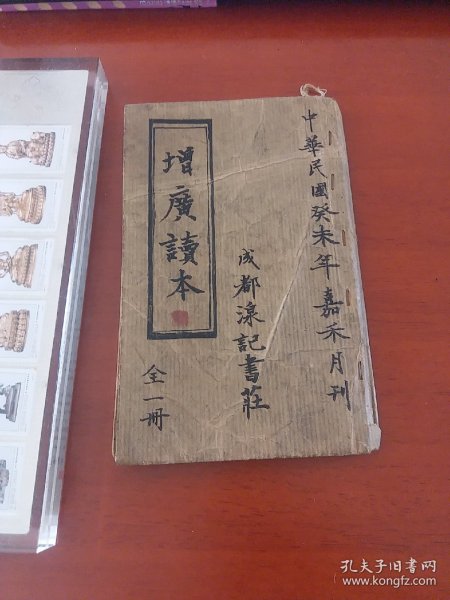 中華民國癸未年嘉禾月刊
成都湶記書莊
增廣讀本
全一冊
孔夫子旧书网
www.kongfz.com